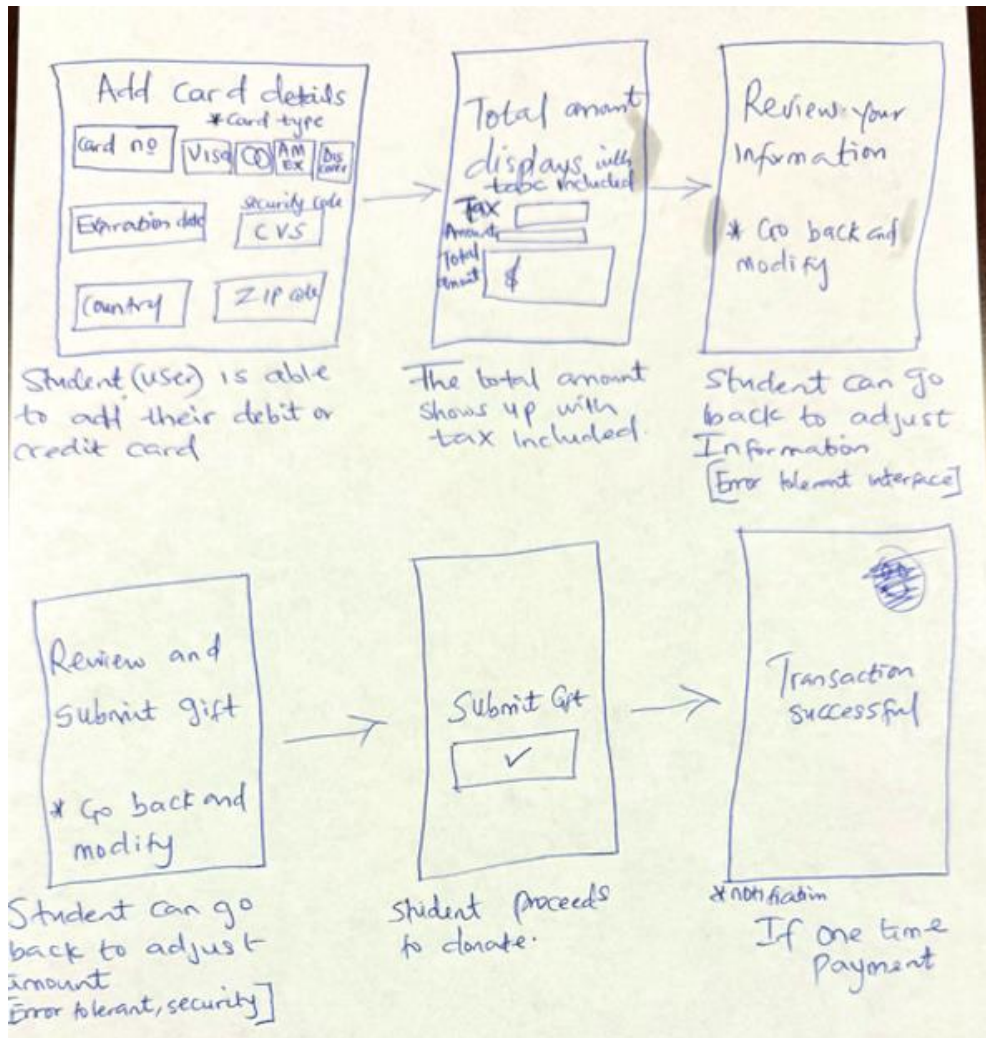 Add Card details
*Card type
Card no
Visa
AM
EX
Dis
cover
Expiration date
Security Code
CVS
Country
ZIP code
Student (user) is able
to add their debit or
credit card
Total amount
displays with
included
Tax
Amount
Total
amount
$
The total amount
shows up with
tax included.
Review your
Information
* Go back and
modify
Student can go
back to adjust
Information
[Error tolerant interface]
Review and
submit gift
* Go back and
modify
Student can go
back to adjust
amount
Error tolerant, security]
Submit Gift
✓
student proceeds
to donate.
Transaction
successful
*notification
If one time
payment